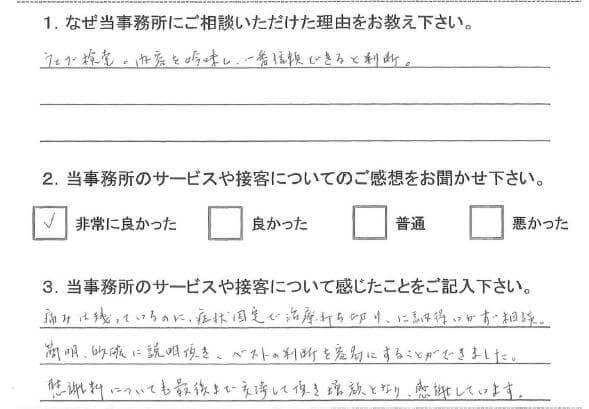 1. なぜ当事務所にご相談いただけた理由をお教え下さい。
ウェブ検索。内容を吟味し、一番信頼できると判断。
2. 当事務所のサービスや接客についてのご感想をお聞かせ下さい。
✓ 非常に良かった 良かった 普通 悪かった
3. 当事務所のサービスや接客について感じたことをご記入下さい。
痛みは残っているのに、症状固定で治療打ち切り、に納得いかず相談。
簡明、的確に説明頂き、ベストの判断を容易にすることができました。
慰謝料についても最後まで交渉して頂き増額となり、感謝しています。